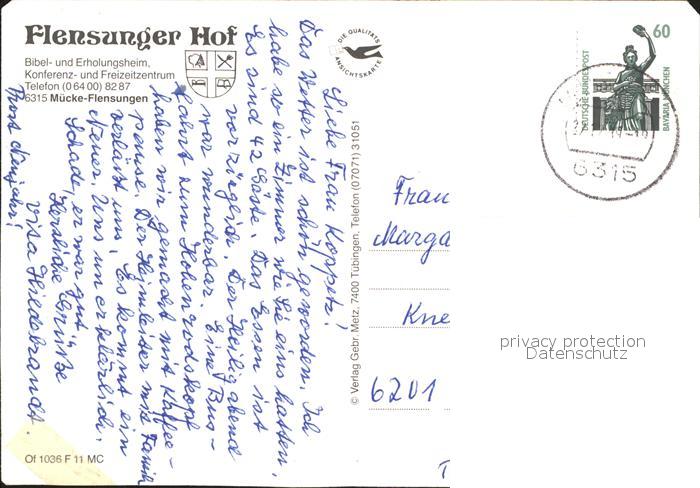 Flensunger Hof
Bibel- und Erholungsheim,
Konferenz- und Freizeitzentrum
Telefon (0 64 00) 82 87
6315 Mücke-Flensungen
Liebe Frau Koppetz!
Das Wetter ist schön geworden. Ich
habe so ein Zimmer wie Sie eins hatten.
Es sind 42 Gäste. Das Essen ist
vorzüglich. Der Heiligabend
war wunderbar. Eine Bus-
fahrt zum Hohenrodskopf
haben wir gemacht mit Kaffee-
pause. Der Heimleiter mit Familie
verläßt uns. Es kommt ein
Neuer. Uns unerklärlich.
Schade, er war gut
Herzliche Grüße
Hildebrandt.
© Verlag Gebr. Metz, 7400 Tübingen, Telefon (07071) 31051
DIE QUALITÄTS
ANSICHTSKARTE
60
DEUTSCHE BUNDESPOST
BAVARIA MÜNCHEN
6315
Frau
Marga
Kne
6201
privacy protection
Datenschutz
Of 1036 F 11 MC